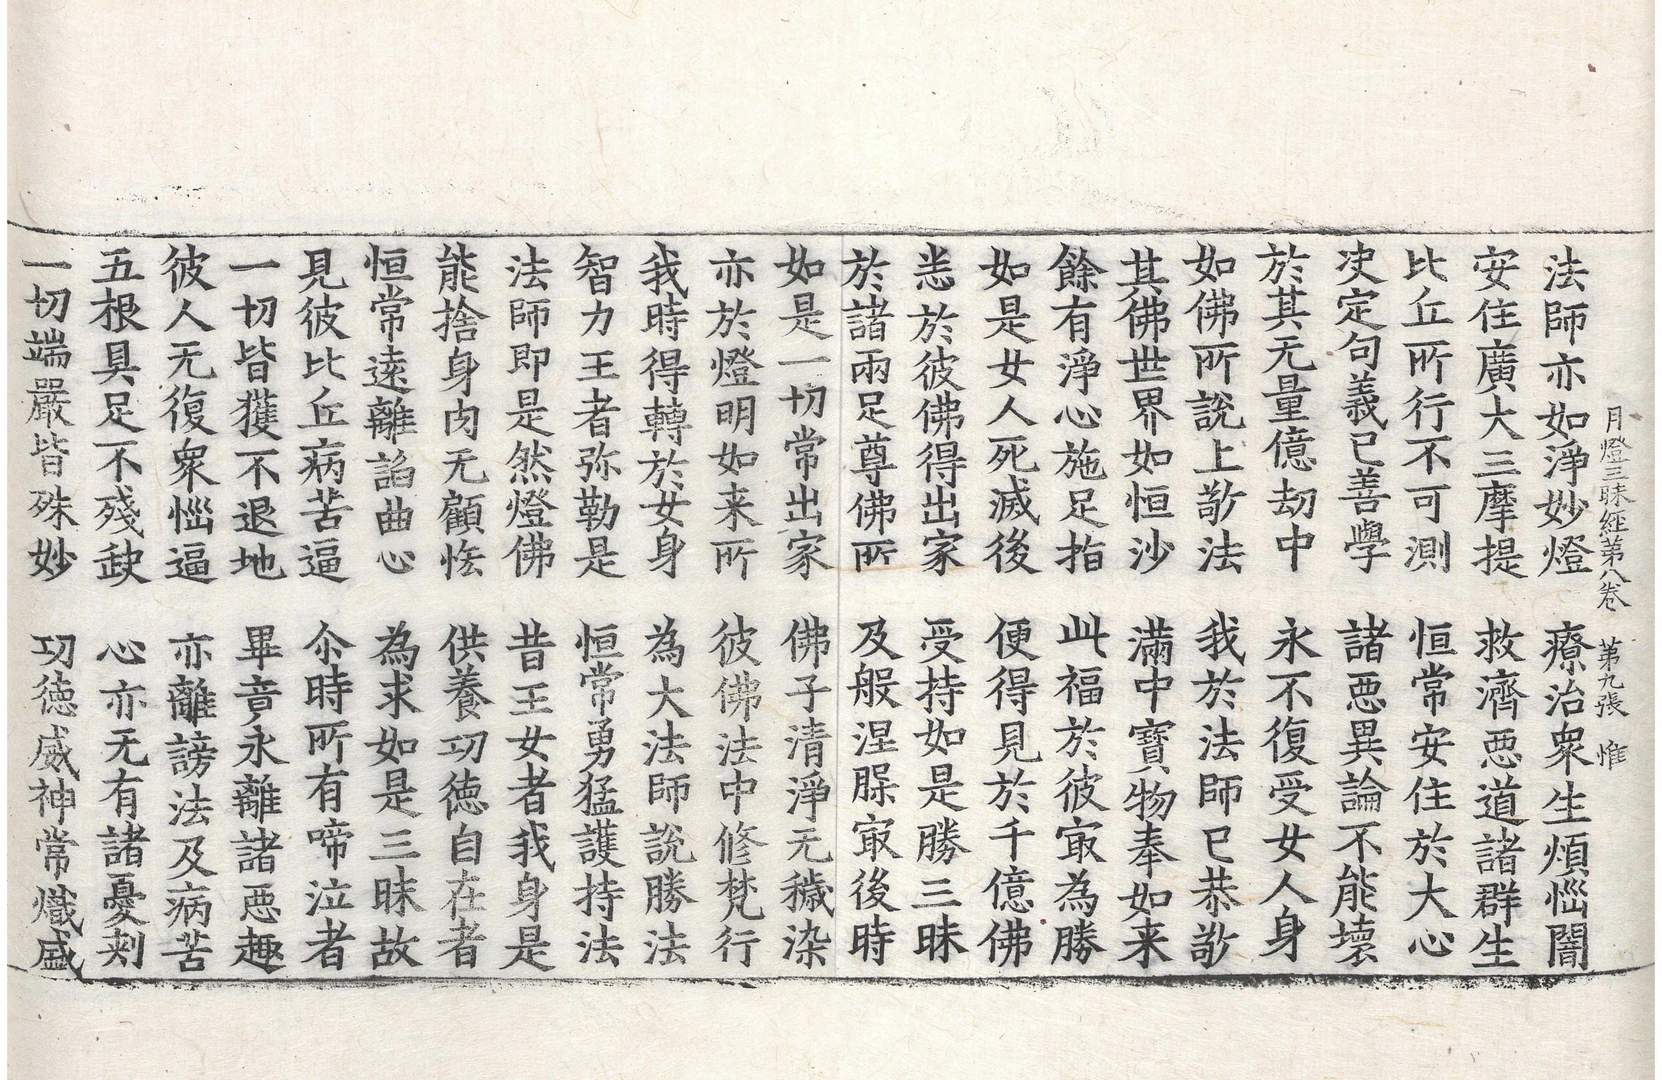 月燈三昧經第八卷　第九張　惟
法師亦如淨妙燈　療治衆生煩惱闇
安住廣大三摩提　救濟惡道諸群生
比丘所行不可測　恒常安住於大心
决定句義已善學　諸惡異論不能壞
於其无量億劫中　永不復受女人身
如佛所說上㪟法　我於法師已恭㪟
其佛世界如恒沙　滿中寶物奉如来
餘有淨心施足指　此福於彼㝡為勝
如是女人死滅後　便得見於千億佛
悉於彼佛得出家　受持如是勝三昧
於諸兩足尊佛所　及般涅槃㝡後時
如是一切常出家　佛子清淨无穢染
亦於燈明如来所　彼佛法中修梵行
我時得轉於女身　為大法師說勝法
智力王者弥勒是　恒常勇猛護持法
法師即是然燈佛　昔王女者我身是
能捨身肉无顧恡　供養功德自在者
恒常遠離諂曲心　為求如是三昧故
見彼比丘病苦逼　尒時所有啼泣者
一切皆獲不退地　畢竟永離諸惡趣
彼人无復衆惱逼　亦離謗法及病苦
五根具足不殘缺　心亦无有諸憂刾
一切端嚴皆殊妙　功德威神常熾盛